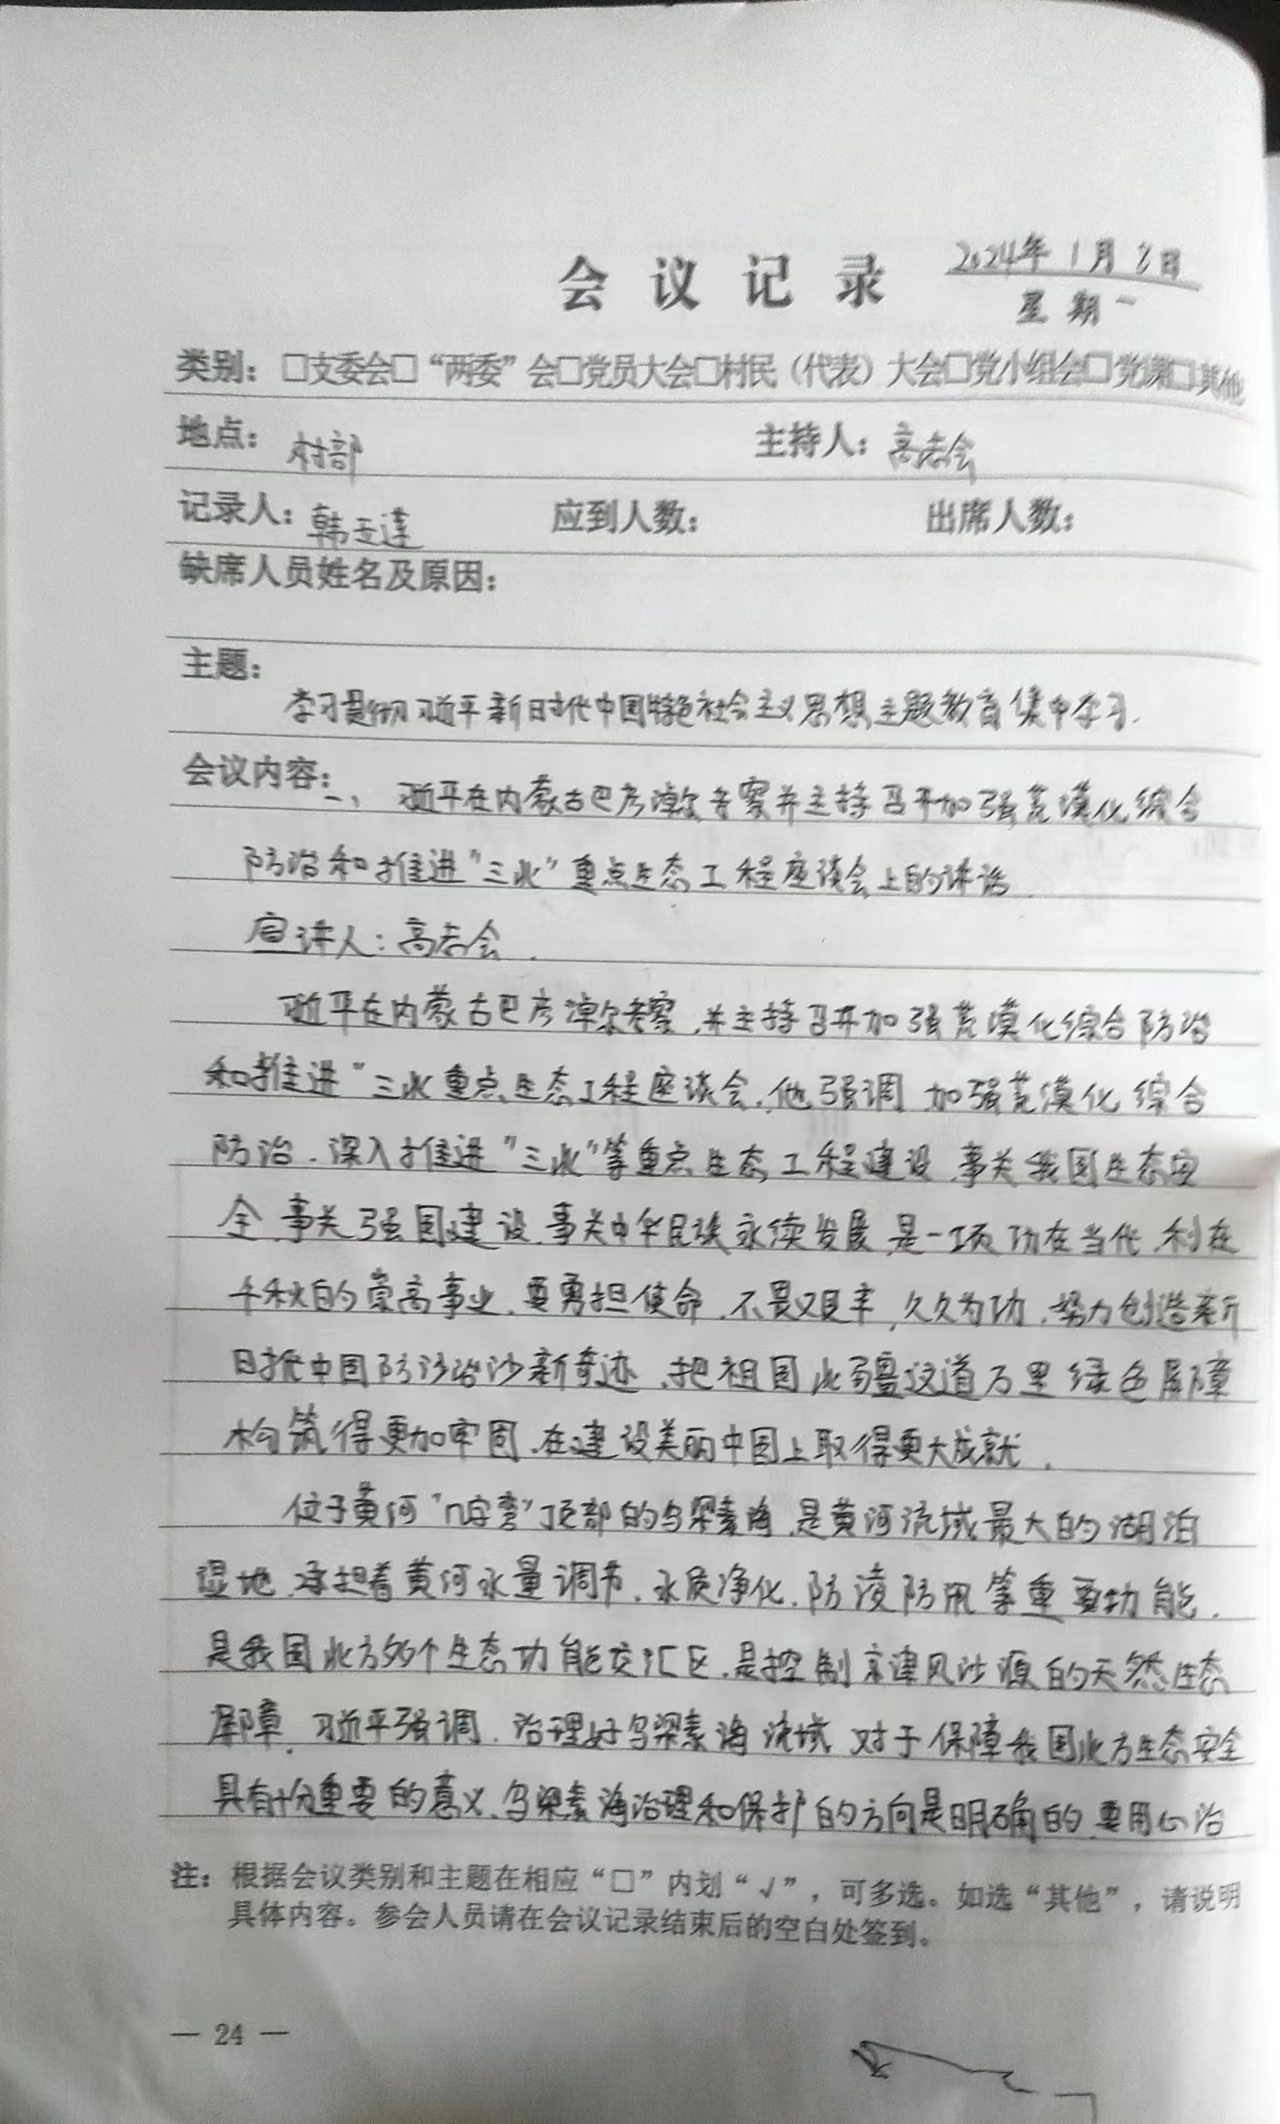 会议记录
2024年1月8日
星期一
类别：□支委会□“两委”会□党员大会□村民（代表）大会□党小组会□党课□其他
地点：村部 主持人：高志会
记录人：韩玉莲 应到人数： 出席人数：
缺席人员姓名及原因：
主题：
学习贯彻习近平新时代中国特色社会主义思想主题教育集中学习.
会议内容：一、习近平在内蒙古巴彦淖尔考察并主持召开加强荒漠化综合
防治和推进“三北”重点生态工程座谈会上的讲话
宣讲人：高志会.
习近平在内蒙古巴彦淖尔考察,并主持召开加强荒漠化综合防治
和推进“三北重点生态工程座谈会,他强调 加强荒漠化综合
防治.深入推进“三北”等重点生态工程建设.事关我国生态安
全,事关强国建设.事关中华民族永续发展,是一项功在当代,利在
千秋的崇高事业.要勇担使命.不畏艰辛,久久为功.努力创造新
时代中国防沙治沙新奇迹.把祖国北疆这道万里绿色屏障
构筑得更加牢固,在建设美丽中国上取得更大成就.
位于黄河“几字弯”顶部的乌梁素海.是黄河流域最大的湖泊
湿地.承担着黄河水量调节.水质净化.防凌防汛等重要功能.
是我国北方多个生态功能交汇区.是控制京津风沙源的天然生态
屏障.习近平强调.治理好乌梁素海流域 对于保障我国北方生态安全
具有十分重要的意义.乌梁素海治理和保护的方向是明确的.要用心治
注：根据会议类别和主题在相应“□”内划“√”，可多选。如选“其他”，请说明
具体内容。参会人员请在会议记录结束后的空白处签到。
— 24 —